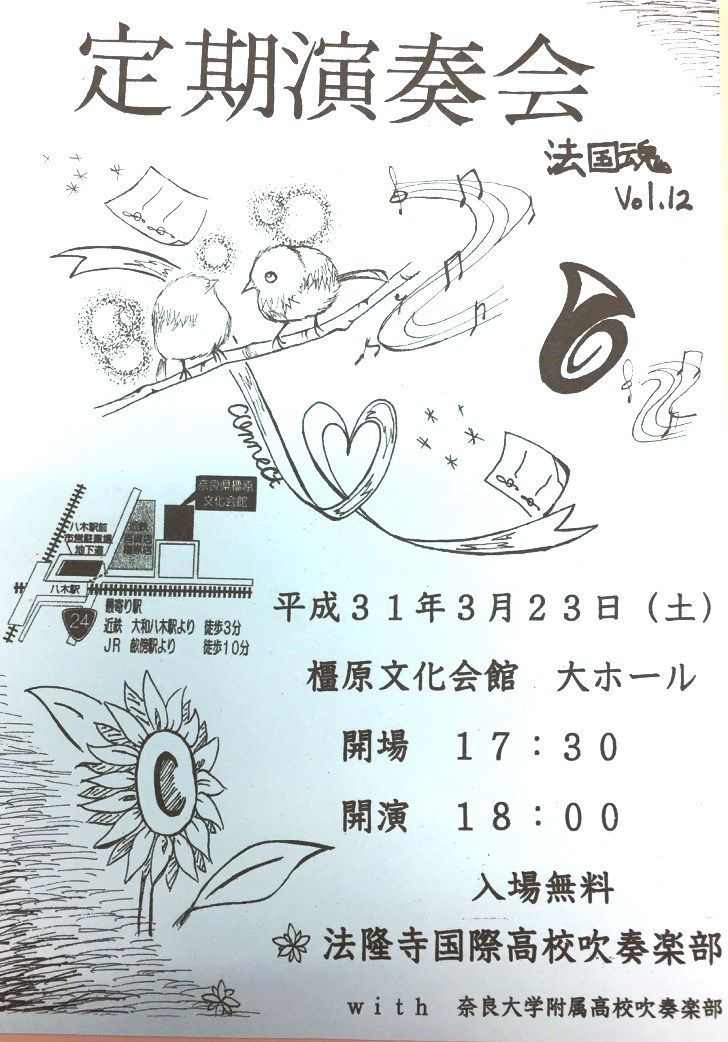 定期演奏会
法国魂
Vol.12
connect
奈良県橿原
文化会館
八木駅前
市営駐車場
地下道
近鉄
百貨店
橿原店
八木駅
24
最寄り駅
近鉄 大和八木駅より 徒歩3分
JR 畝傍駅より 徒歩10分
平成31年3月23日(土)
橿原文化会館 大ホール
開場 17:30
開演 18:00
C
入場無料
法隆寺国際高校吹奏楽部
with 奈良大学附属高校吹奏楽部